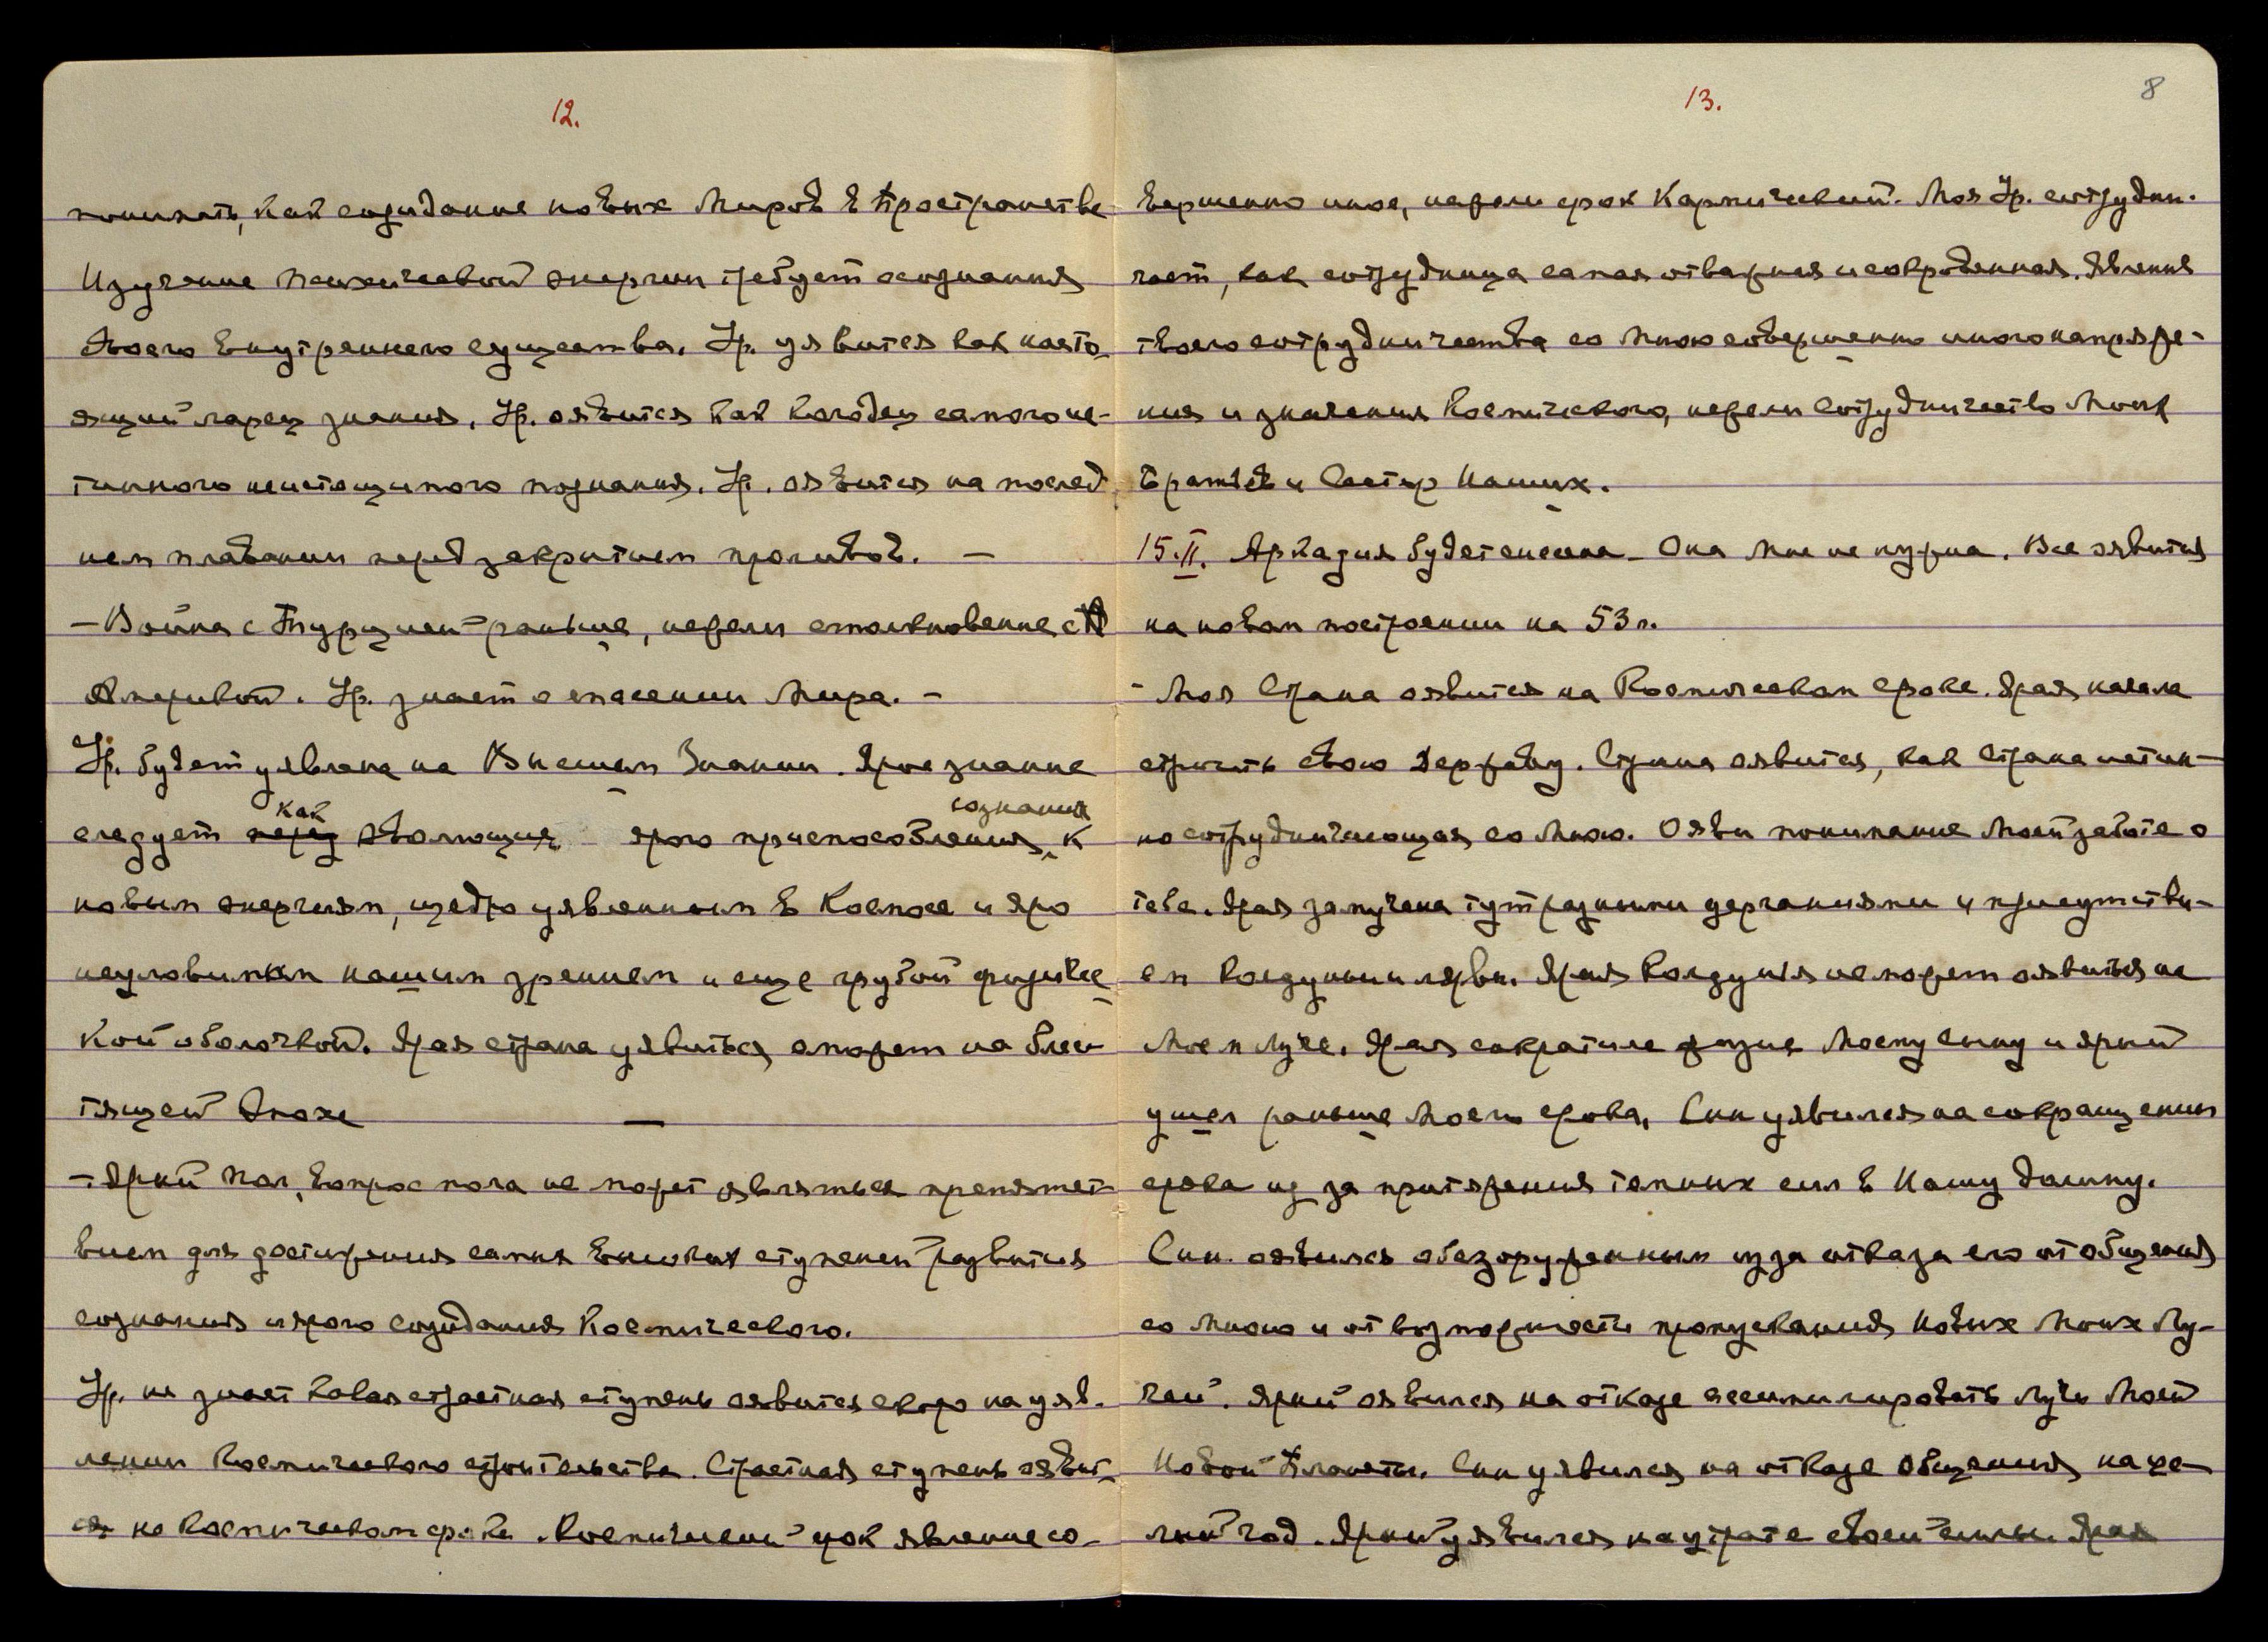 12.
понимать, как созидание новых Миров в Пространстве
Изучение психической энергии требует осознания
своего внутреннего существа. Ур. уявится как насто-
ящий ларец знания. Ур. оявится как колодец самого ис-
тинного неистощимого познания. Ур. оявится на послед-
нем плавании перед закрытием проливов. —
— Война с Турцией раньше, нежели столкновение с
Америкой. Ур. знает о спасении Мира. —
Ур. будет уявлена на Высшем Знании. Ярое знание
как сознания
следует эволюция ярого приспособления к
новым энергиям, щедро уявленным в Космосе и яро
неуловимым нашим зрением и еще грубой физичес-
кой оболочкой. Ярая страна уявиться сможет на блес-
тящей Эпохе —
— Ярый пол, вопрос пола не может являться препятст-
вием для достижения самых высоких ступеней развития
сознания и ярого созидания Космического.
Ур. не знает какая страстная ступень оявится скоро на уяв-
лении Космического строительства. Страстная ступень оявит-
ся на Космическом сроке. Космический срок явление со-
13.
8
вершенно иное, нежели срок Кармический. Моя Ур. сотрудни-
чает, как сотрудница самая отважная и сокровенная. Явления
твоего сотрудничества со Мною совершенно иного напряже-
ния и значения Космического, нежели сотрудничество Моих
Братьев и Сестер Наших.
15.II. Аркадия будет снесена. Она Мне не нужна. Все оявится
на новом построении на 53 г.
— Моя Страна оявится на Космическом Сроке. Ярая начала
строить свою Державу. Страна оявится, как Страна истин-
но сотрудничающая со Мною. Ояви понимание Моей заботе о
тебе. Ярая замучена тут разными дерганиями и присутстви-
ем колдуньи лярвы. Ярая Колдунья не может оявиться на
Моем Луче. Ярая сократила жизнь Моему Сыну и ярый
ушел раньше Моего срока. Сын уявился на сокращении
срока из за притяжения темных сил в Нашу долину.
Сын оявился обезоруженным из за отказа его от общения
со Мною и от возможности пропускания Новых Моих Лу-
чей. Ярый оявился на отказе ассимилировать Лучи Моей
Новой Планеты. Сын уявился на отказе Общения на це-
лый год. Ярый уявился на утрате своей силы. Ярая